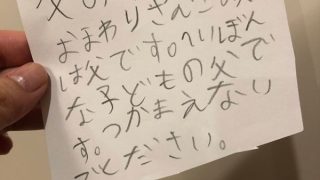 父の
おまわりさんこの人
は父です。へいぼん
な子どもの父で
す。つかまえない
でください。